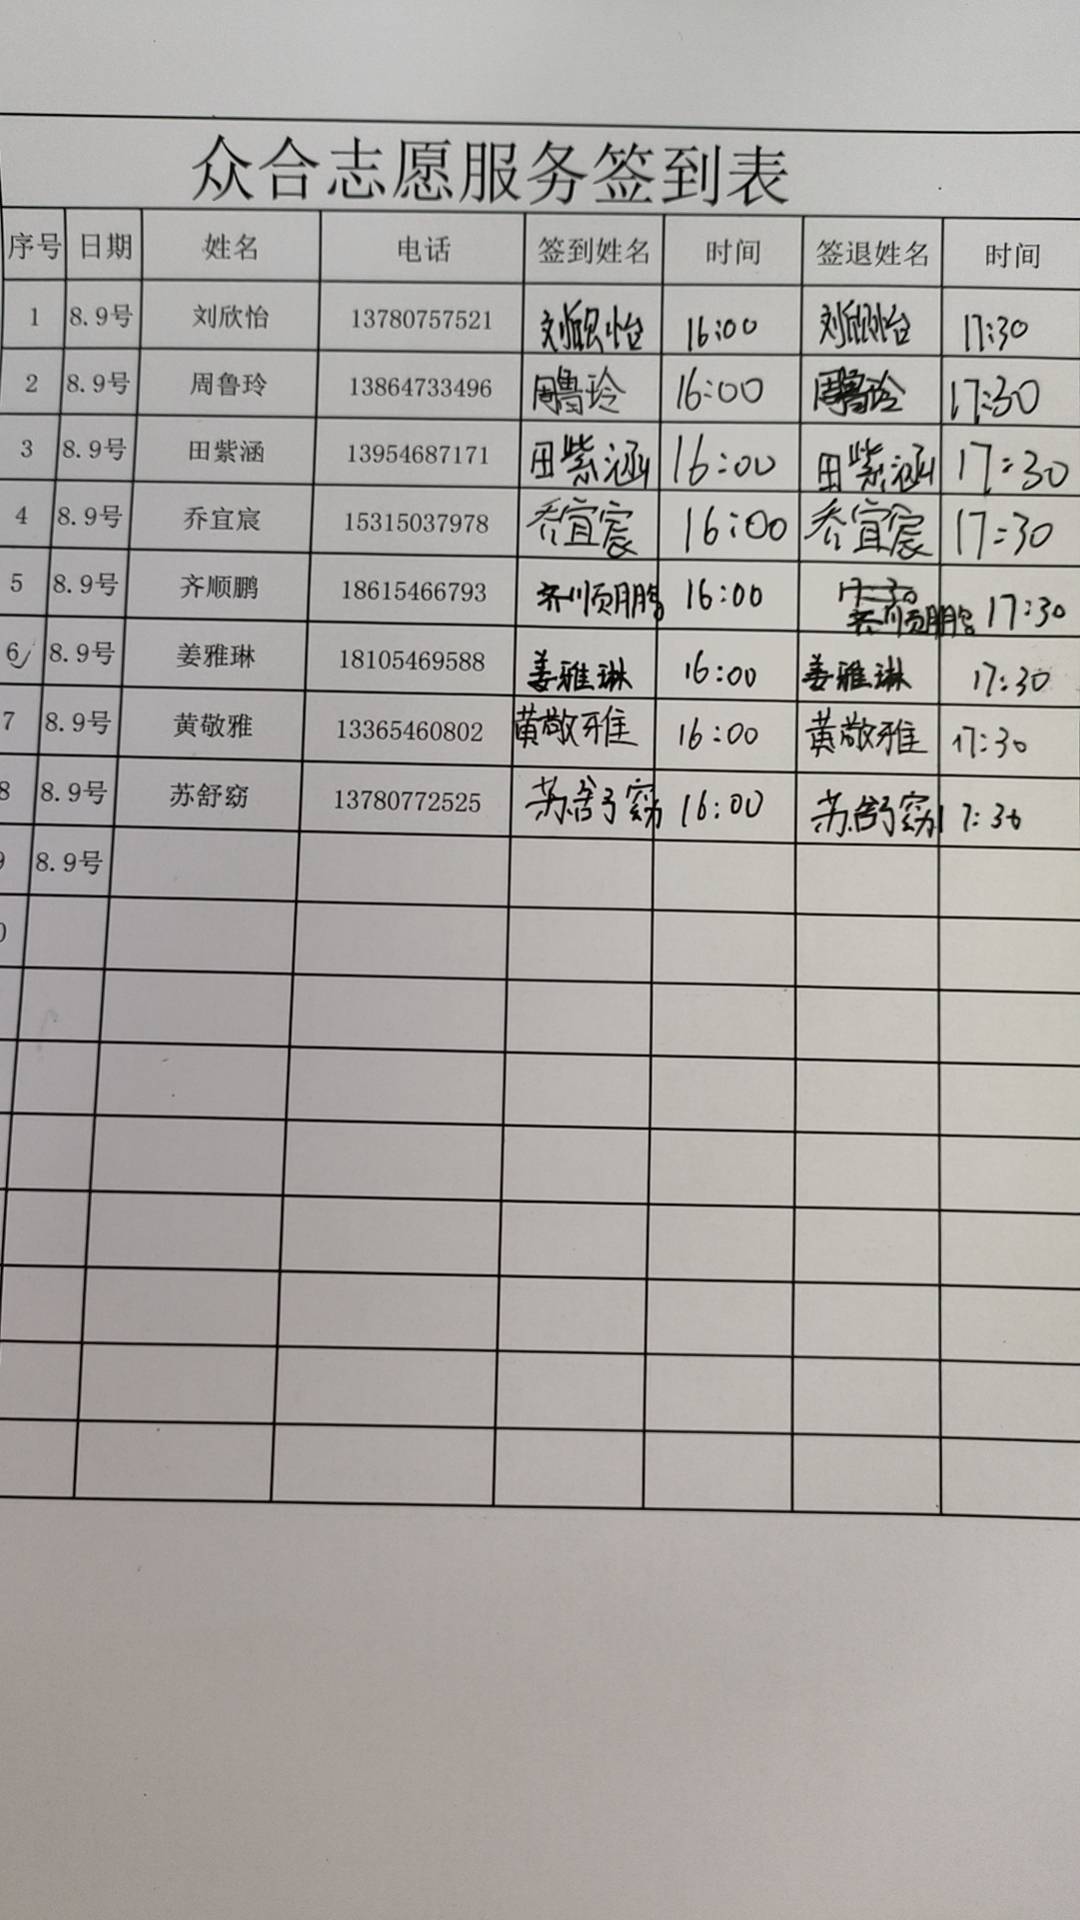 众合志愿服务签到表
序号 日期 姓名 电话 签到姓名 时间 签退姓名 时间
1 8.9号 刘欣怡 13780757521 刘欣怡 16:00 刘欣怡 17:30
2 8.9号 周鲁玲 13864733496 周鲁玲 16:00 周鲁玲 17:30
3 8.9号 田紫涵 13954687171 田紫涵 16:00 田紫涵 17:30
4 8.9号 乔宜宸 15315037978 乔宜宸 16:00 乔宜宸 17:30
5 8.9号 齐顺鹏 18615466793 齐顺鹏 16:00 17:30 齐顺鹏 17:30
6 8.9号 姜雅琳 18105469588 姜雅琳 16:00 姜雅琳 17:30
7 8.9号 黄敬雅 13365460802 黄敬雅 16:00 黄敬雅 17:30
8 8.9号 苏舒窈 13780772525 苏舒窈 16:00 苏舒窈 17:30
9 8.9号
0